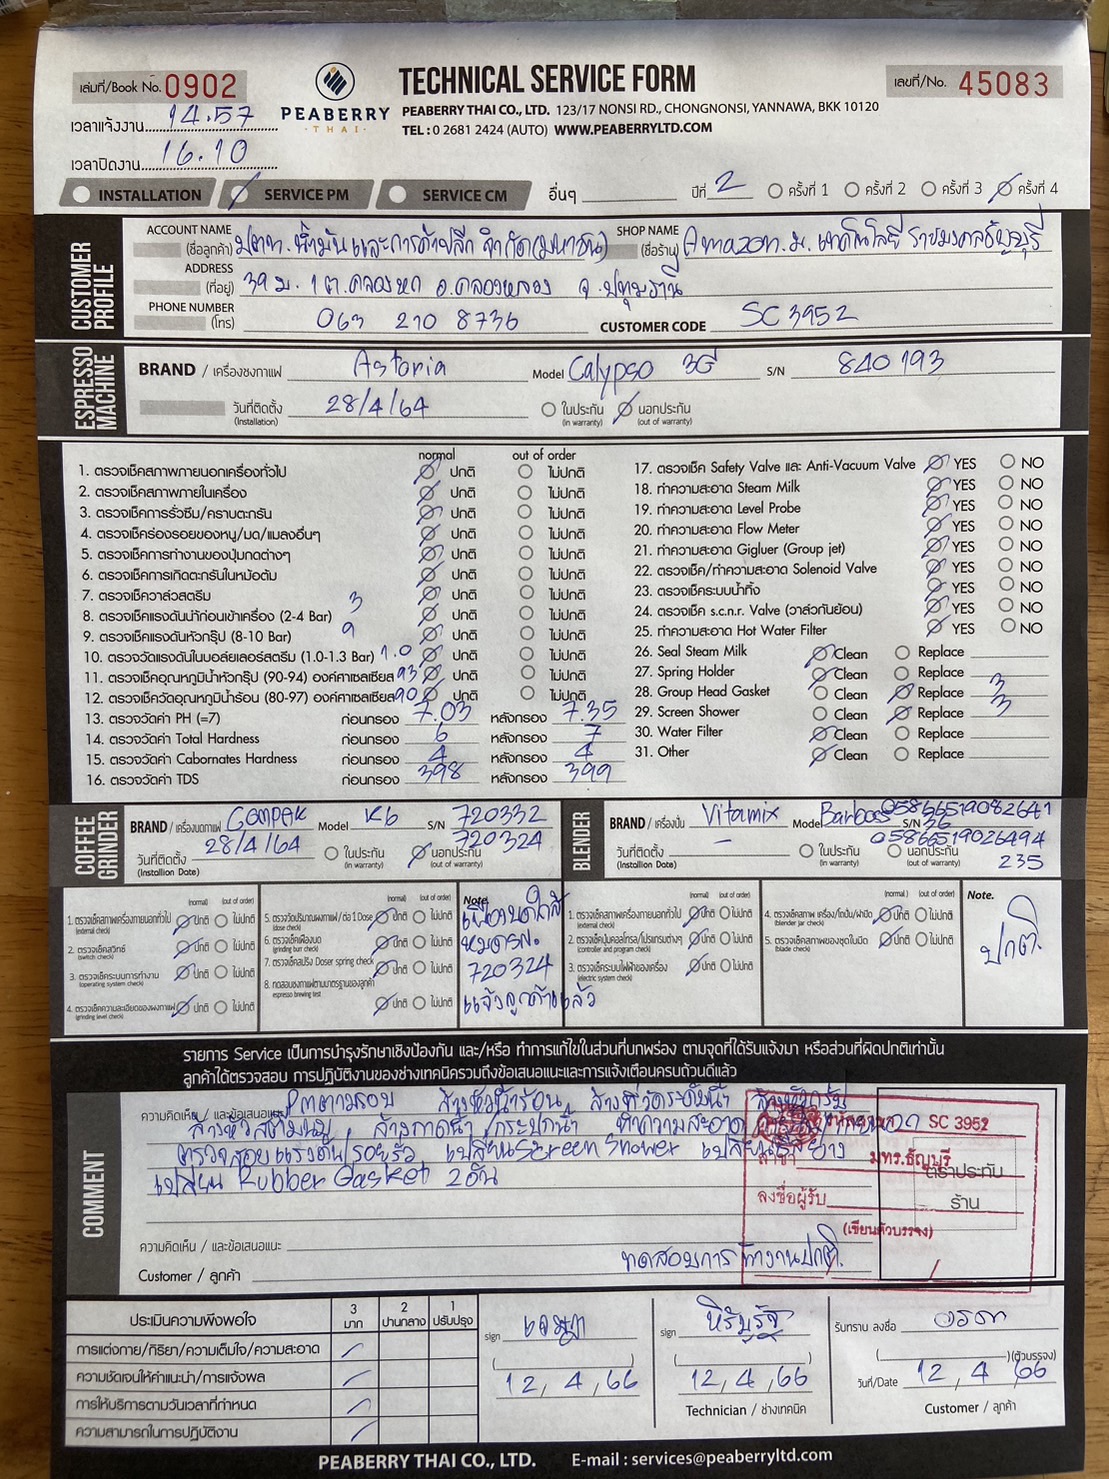 เล่มที่/Book No. 0902
PEABERRY
THAI
TECHNICAL SERVICE FORM
PEABERRY THAI CO., LTD. 123/17 NONSI RD., CHONGNONSI, YANNAWA, BKK 10120
TEL : 0 2681 2424 (AUTO) WWW.PEABERRYLTD.COM
เลขที่/No. 45083
เวลาแจ้งงาน 14.57
เวลาปิดงาน 16.10
INSTALLATION SERVICE PM SERVICE CM อื่นๆ ปีที่ 2 ครั้งที่ 1 ครั้งที่ 2 ครั้งที่ 3 ครั้งที่ 4
CUSTOMER PROFILE
ACCOUNT NAME (ชื่อลูกค้า) ปตท. น้ำมันและการค้าปลีก จำกัด(มหาชน) SHOP NAME (ชื่อร้าน) Amazon ม. เทคโนโลยี ราชมงคลธัญบุรี
ADDRESS (ที่อยู่) 39 ม. 1 ต.คลองหก อ.คลองหลวง จ.ปทุมธานี
PHONE NUMBER (โทร) 063 210 8736 CUSTOMER CODE SC 3952
ESPRESSO MACHINE
BRAND / เครื่องชงกาแฟ Astoria Model Calypso 3G S/N 840193
วันที่ติดตั้ง (Installation) 28/4/64 ในประกัน (in warranty) นอกประกัน (out of warranty)
normal out of order
1. ตรวจเช็คสภาพภายนอกเครื่องทั่วไป ปกติ ไม่ปกติ
2. ตรวจเช็คสภาพภายในเครื่อง ปกติ ไม่ปกติ
3. ตรวจเช็คการรั่วซึม/คราบตะกรัน ปกติ ไม่ปกติ
4. ตรวจเช็คร่องรอยของหนู/มด/แมลงอื่นๆ ปกติ ไม่ปกติ
5. ตรวจเช็คการทำงานของปุ่มกดต่างๆ ปกติ ไม่ปกติ
6. ตรวจเช็คการเกิดตะกรันในหม้อต้ม ปกติ ไม่ปกติ
7. ตรวจเช็ควาล์วสตรีม ปกติ ไม่ปกติ
8. ตรวจเช็คแรงดันน้ำก่อนเข้าเครื่อง (2-4 Bar) 3 ปกติ ไม่ปกติ
9. ตรวจเช็คแรงดันหัวกรุ๊ป (8-10 Bar) 9 ปกติ ไม่ปกติ
10. ตรวจวัดแรงดันในบอล์ยเลอร์สตรีม (1.0-1.3 Bar) 1.0 ปกติ ไม่ปกติ
11. ตรวจเช็คอุณหภูมิน้ำหัวกรุ๊ป (90-94) องค์ศาเซลเซียส 93 ปกติ ไม่ปกติ
12. ตรวจเช็ควัดอุณหภูมิน้ำร้อน (80-97) องค์ศาเซลเซียส 90 ปกติ ไม่ปกติ
13. ตรวจวัดค่า PH (=7) ก่อนกรอง 7.03 หลังกรอง 7.35
14. ตรวจวัดค่า Total Hardness ก่อนกรอง 6 หลังกรอง 7
15. ตรวจวัดค่า Cabornates Hardness ก่อนกรอง 4 หลังกรอง 4
16. ตรวจวัดค่า TDS ก่อนกรอง 398 หลังกรอง 399
17. ตรวจเช็ค Safety Valve และ Anti-Vacuum Valve YES NO
18. ทำความสะอาด Steam Milk YES NO
19. ทำความสะอาด Level Probe YES NO
20. ทำความสะอาด Flow Meter YES NO
21. ทำความสะอาด Gigluer (Group jet) YES NO
22. ตรวจเช็ค/ทำความสะอาด Solenoid Valve YES NO
23. ตรวจเช็คระบบน้ำทิ้ง YES NO
24. ตรวจเช็ค s.c.n.r. Valve (วาล์วกันย้อน) YES NO
25. ทำความสะอาด Hot Water Filter YES NO
26. Seal Steam Milk Clean Replace
27. Spring Holder Clean Replace
28. Group Head Gasket Clean Replace 3
29. Screen Shower Clean Replace 3
30. Water Filter Clean Replace
31. Other Clean Replace
COFFEE GRINDER
BRAND / เครื่องบดกาแฟ Compak Model K6 S/N 720332
720324
วันที่ติดตั้ง (Installation Date) 28/4/64 ในประกัน (in warranty) นอกประกัน (out of warranty)
BLENDER
BRAND / เครื่องปั่น Vitamix Model S/N
วันที่ติดตั้ง (Installion Date) - ในประกัน (in warranty) นอกประกัน (out of warranty)
05866519026494
235
(normal) (out of order)
1. ตรวจเช็คสภาพเครื่องภายนอกทั่วไป (external check) ปกติ ไม่ปกติ
2. ตรวจเช็คสวิทซ์ (switch check) ปกติ ไม่ปกติ
3. ตรวจเช็คระบบการทำงาน (operating system check) ปกติ ไม่ปกติ
4. ตรวจเช็คความละเอียดของผงกาแฟ (grinding level check) ปกติ ไม่ปกติ
5. ตรวจวัดปริมาณผงกาแฟ / ต่อ 1 Dose (dose check) ปกติ ไม่ปกติ
6. ตรวจเช็คเฟืองบด (grinding burr check) ปกติ ไม่ปกติ
7. ตรวจเช็คสปริง Doser spring check ปกติ ไม่ปกติ
8. ทดสอบชงกาแฟตามมาตรฐานของลูกค้า espresso brewing test ปกติ ไม่ปกติ
Note.
เฟืองบดใกล้
หมด
720324
แจ้งลูกค้าแล้ว
1. ตรวจเช็คสภาพเครื่องภายนอกทั่วไป (external check) ปกติ ไม่ปกติ
2. ตรวจเช็คปุ่มคอลโทรล/โปรแกรมต่างๆ (controller and program check) ปกติ ไม่ปกติ
3. ตรวจเช็คระบบไฟฟ้าของเครื่อง (electric system check) ปกติ ไม่ปกติ
4. ตรวจเช็คสภาพ เครื่อง/โถปั่น/ฝาปิด (blender jar check) ปกติ ไม่ปกติ
5. ตรวจเช็คสภาพของชุดใบมีด (blade check) ปกติ ไม่ปกติ
Note.
ปกติ.
รายการ Service เป็นการบำรุงรักษาเชิงป้องกัน และ/หรือ ทำการแก้ไขในส่วนที่บกพร่อง ตามจุดที่ได้รับแจ้งมา หรือส่วนที่ผิดปกติเท่านั้น
ลูกค้าได้ตรวจสอบ การปฏิบัติงานของช่างเทคนิครวมถึงข้อเสนอแนะและการแจ้งเตือนครบถ้วนดีแล้ว
COMMENT
ความคิดเห็น / และข้อเสนอแนะ PM ตามรอบ ล้างหัวน้ำร้อน, ล้างที่วัดระดับน้ำ ล้างหัวกรุ๊ป
ล้างหัวสตีมนม, ล้างถาดน้ำ/กระปุกน้ำ ทำความสะอาด
ตรวจสอบแรงดัน/รอยรั่ว, เปลี่ยน Screen Shower
เปลี่ยน Rubber Gasket 2 อัน
SC 3952
สาขา มทร.ธัญบุรี
ลงชื่อผู้รับ
(เขียนตัวบรรจง)
ตราประทับ
ร้าน
ความคิดเห็น / และข้อเสนอแนะ ทดสอบการทำงานปกติ.
Customer / ลูกค้า
ประเมินความพึงพอใจ 3 มาก 2 ปานกลาง 1 ปรับปรุง
การแต่งกาย/กิริยา/ความเต็มใจ/ความสะอาด
ความชัดเจนให้คำแนะนำ/การแจ้งผล
การให้บริการตามวันเวลาที่กำหนด
ความสามารถในการปฏิบัติงาน
sign
12, 4, 66
sign หิรัญรัฐ
12, 4, 66
Technician / ช่างเทคนิค
รับทราบ ลงชื่อ
(ตัวบรรจง)
วันที่/Date 12, 4, 66
Customer / ลูกค้า
PEABERRY THAI CO., LTD. E-mail : services@peaberryltd.com